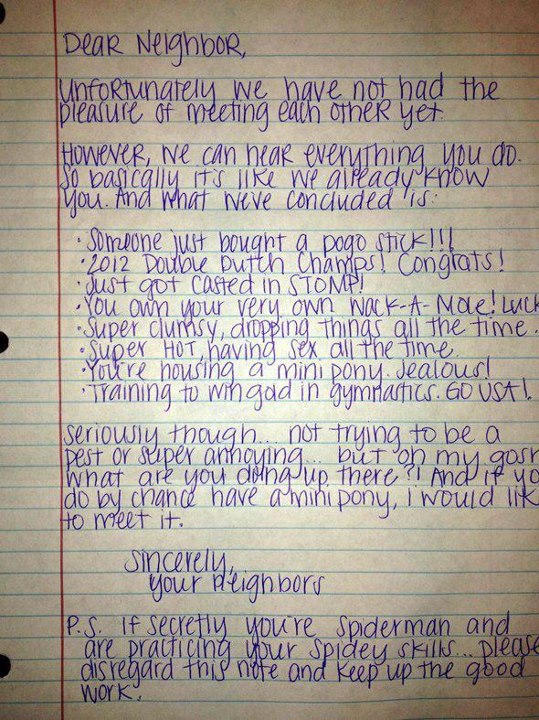 Dear Neighbor,
Unfortunately we have not had the
pleasure of meeting each other yet.
However, we can hear everything you do.
So basically it's like we already know
you. And what we've concluded is:
· Someone just bought a pogo stick!!!
· 2012 Double Dutch Champs! Congrats!
· Just got casted in STOMP!
· You own your very own Wack-A-Mole! Luck
· Super clumsy, dropping things all the time.
· Super HOT, having sex all the time.
· You're housing a mini pony. Jealous!
· Training to win gold in gymnastics. GO USA!
Seriously though... not trying to be a
pest or super annoying... but oh my gosh
what are you doing up there?! And if yo
do by chance have a mini pony, i would lik
to meet it.
Sincerely,
your neighbors
P.S. If secretly you're Spiderman and
are practicing your spidey skills... please
disregard this note and keep up the good
work.